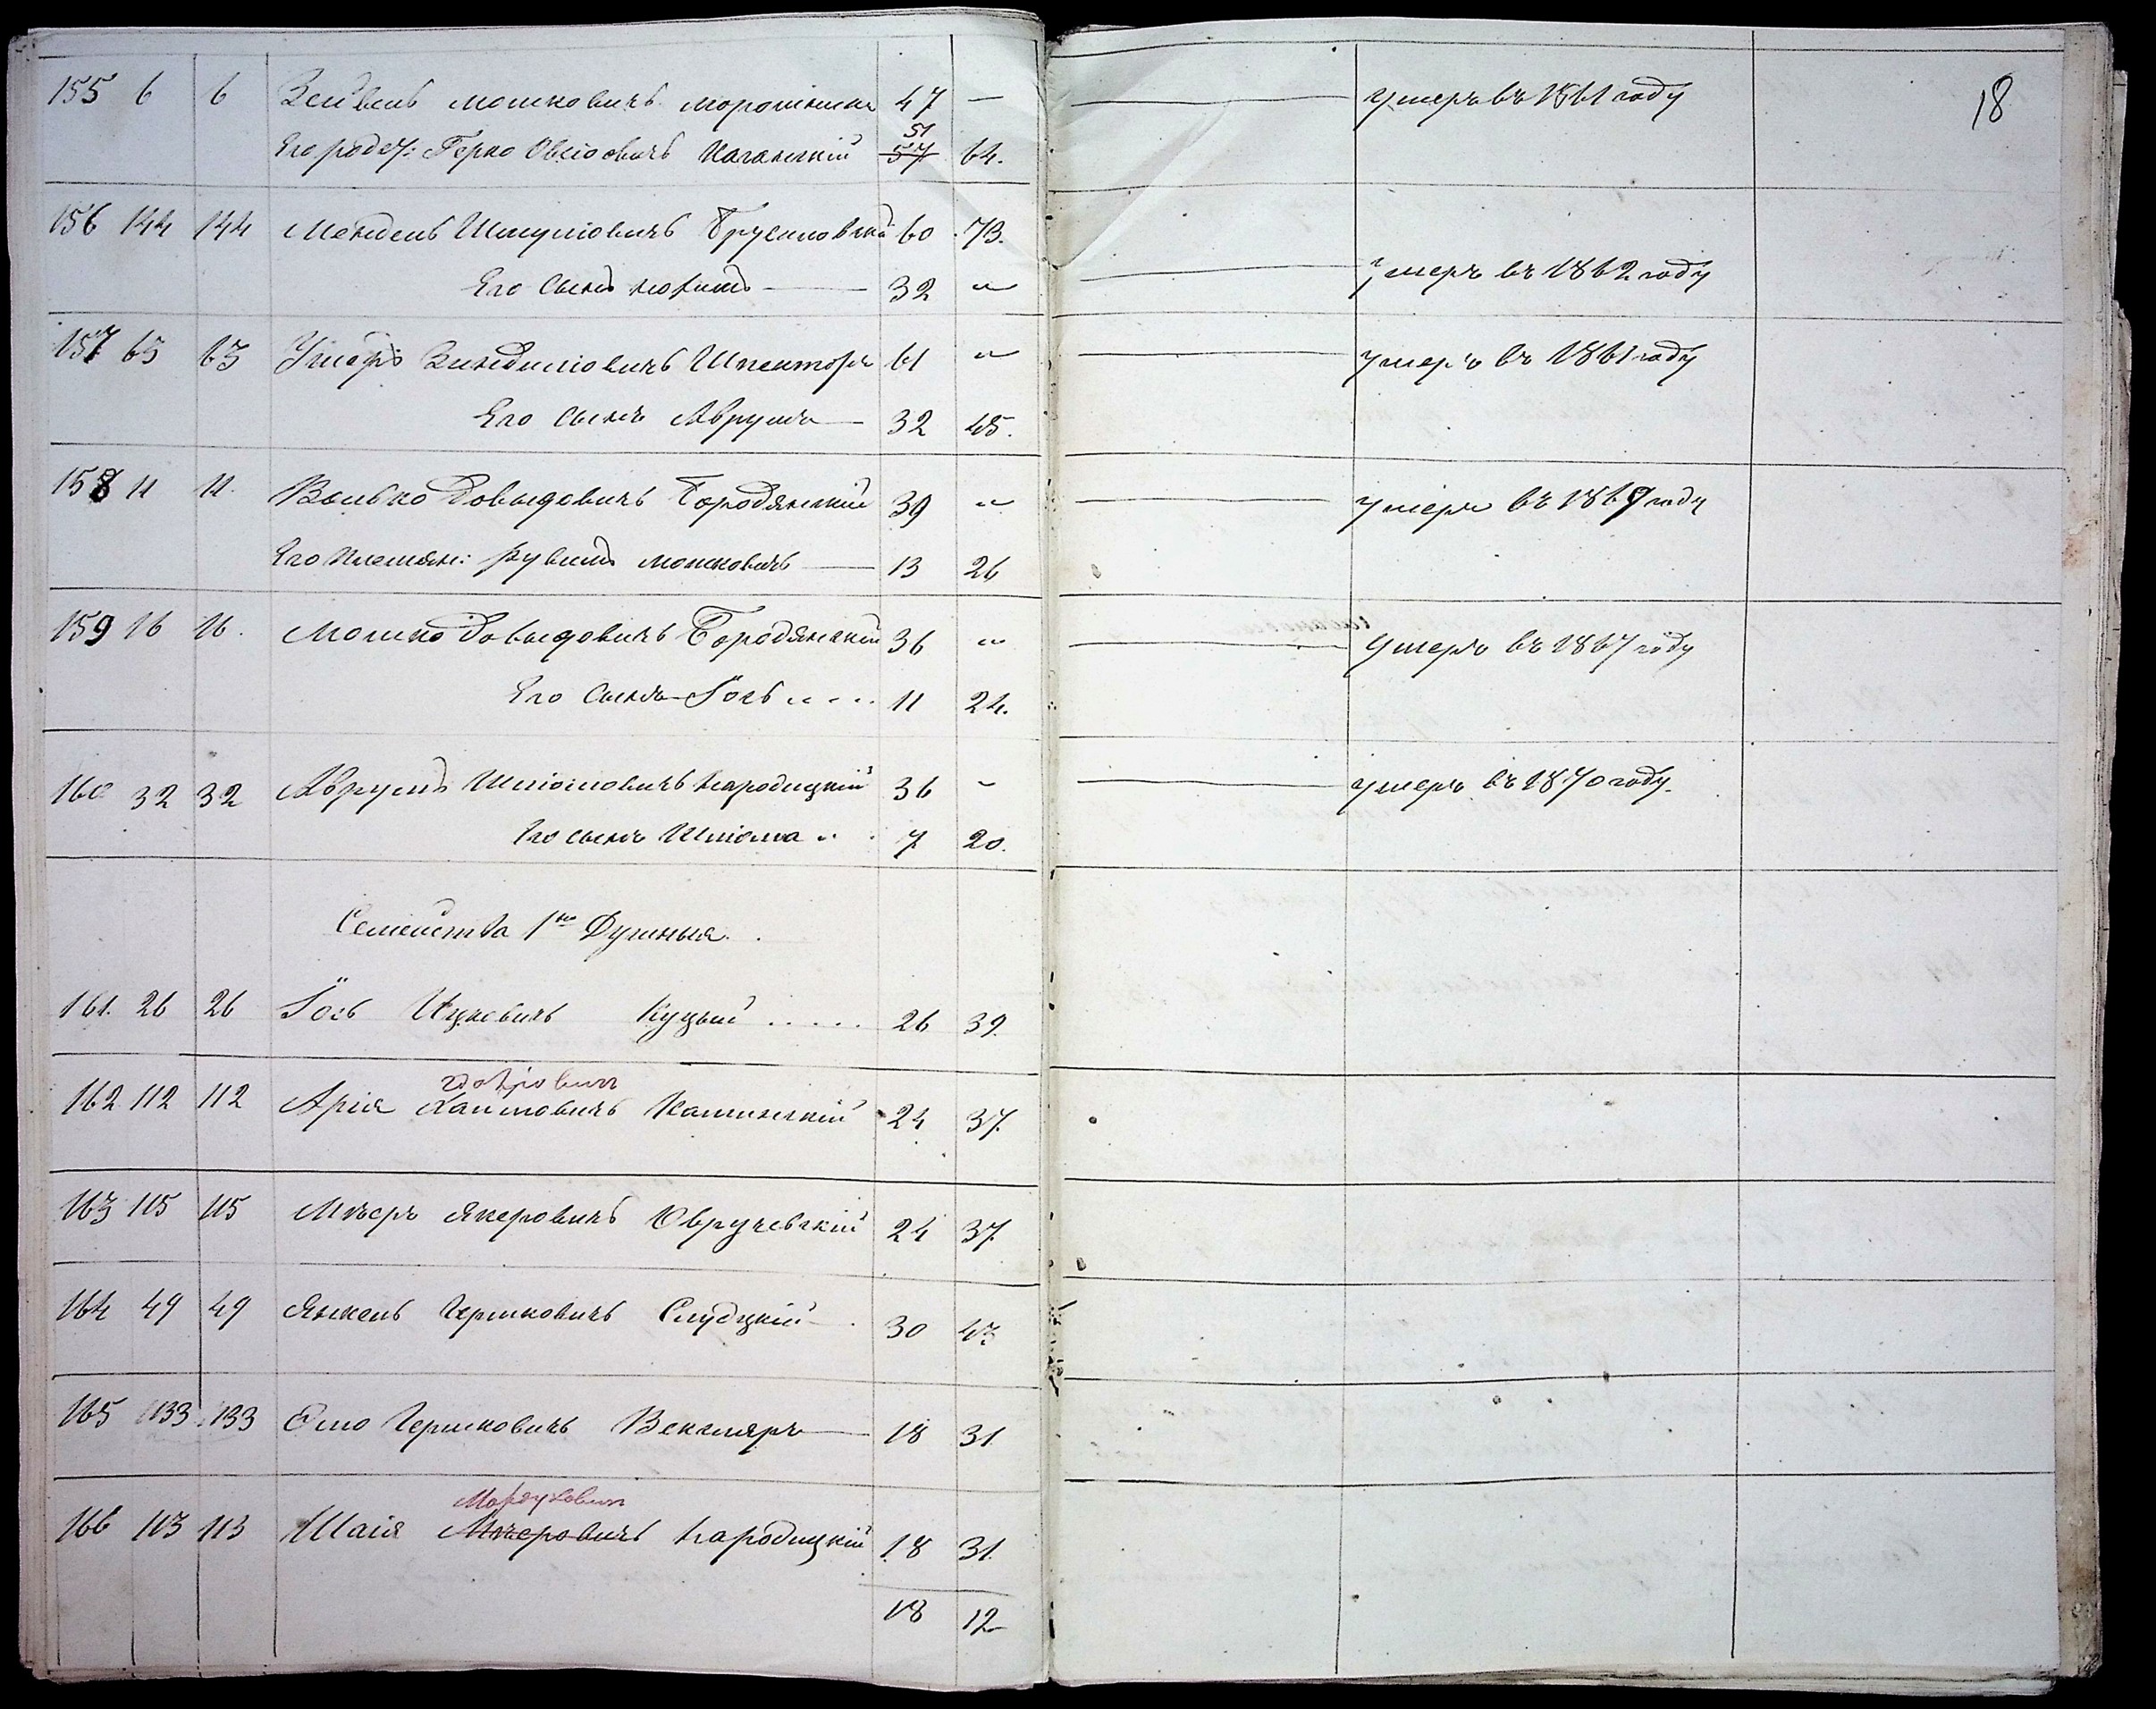 18
155 6 6 Зейвель Мошковичъ 47 — умеръ въ 1861 году
Его родс: Герко Овсіовичъ Каганскій 51 57 64.
156 144 144 Мендель Шмуліовичъ Брусиловскій 60 73.
Его Сынъ 32 „ умеръ въ 1862 году
157 63 63 Ушеръ Шпекторъ 61 „ умеръ въ 1861 году
Его Сынъ Аврумъ 32 45.
158 11 11. Волько Довыдовичъ Бородянскій 39 „ умеръ въ 1869 году
Его племян: Рувинъ Мошковичъ 13 26
159 16 16. Мошко Довыдовичъ Бородянскій 36 „ умеръ въ 1867 году
Его Сынъ Іось 11 24.
160 32 32 Аврумъ Шліомовичъ Народицкій 36 „ умеръ въ 1870 году.
Его сынъ Шліома 7 20.
Семейства 1но Душныя.
161. 26 26 Іось Ицковичъ Куцый ..... 26 39.
162 112 112 Арія Хаимовичъ Каминскій 24 37.
163 115 115 Мееръ Якеровичъ Овручевскій 24 37
164 49 49 Янкель Гершковичъ Слуцкій 30 43
165 133 133 Эліо Гершковичъ Векслеръ 18 31
Мордуховичъ
166 113 113 Шаія Мееровичъ Народицкій 18 31.
18 12